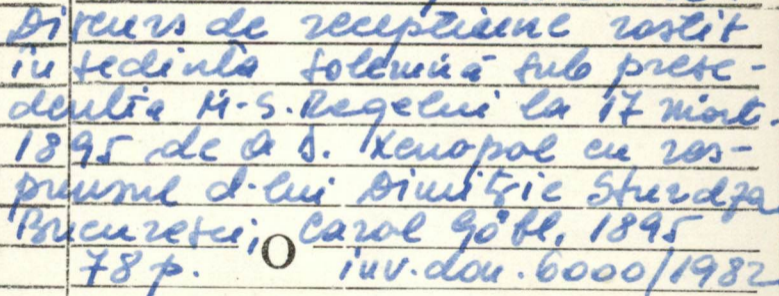 Discurs de recepţiune rostit
în şedinţa solemnă sub prese-
denţia M-S. Regelui la 17 mart.
1895 de A. D. Xenopol cu ros-
punsul d-lui Dimitrie Sturdza
Bucureşti, Carol Göbl, 1895
78 p. inv. don. 6000/1982